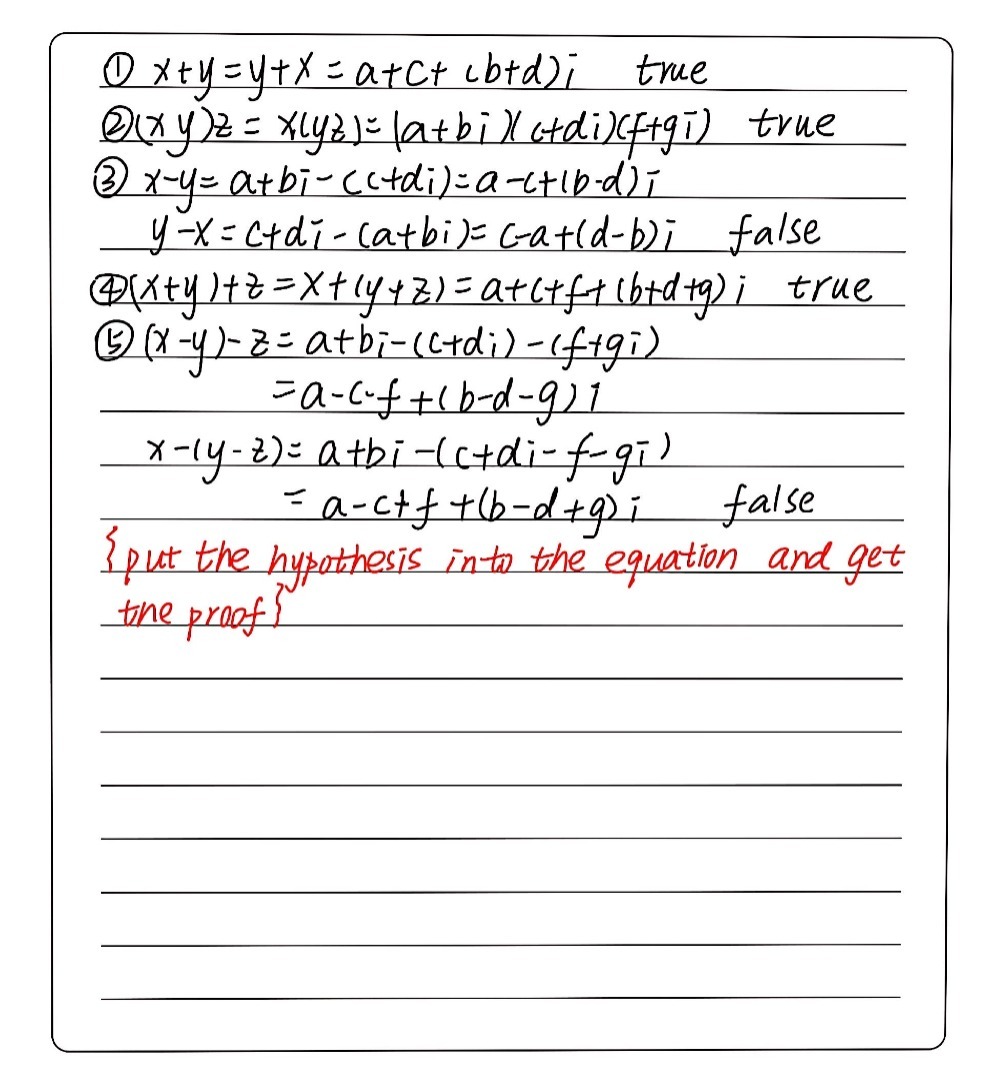 ① x+y=y+x=a+c+(b+d)i true
②(xy)z=x(yz)=(a+bi)(c+di)(f+gi) true
③ x-y=a+bi-(c+di)=a-c+(b-d)i
y-x=c+di-(a+bi)=c-a+(d-b)i false
④(x+y)+z=x+(y+z)=a+c+f+(b+d+g)i true
⑤(x-y)-z=a+bi-(c+di)-(f+gi)
=a-c-f+(b-d-g)i
x-(y-z)=a+bi-(c+di-f-gi)
=a-c+f+(b-d+g)i false
{put the hypothesis into the equation and get
the proof}